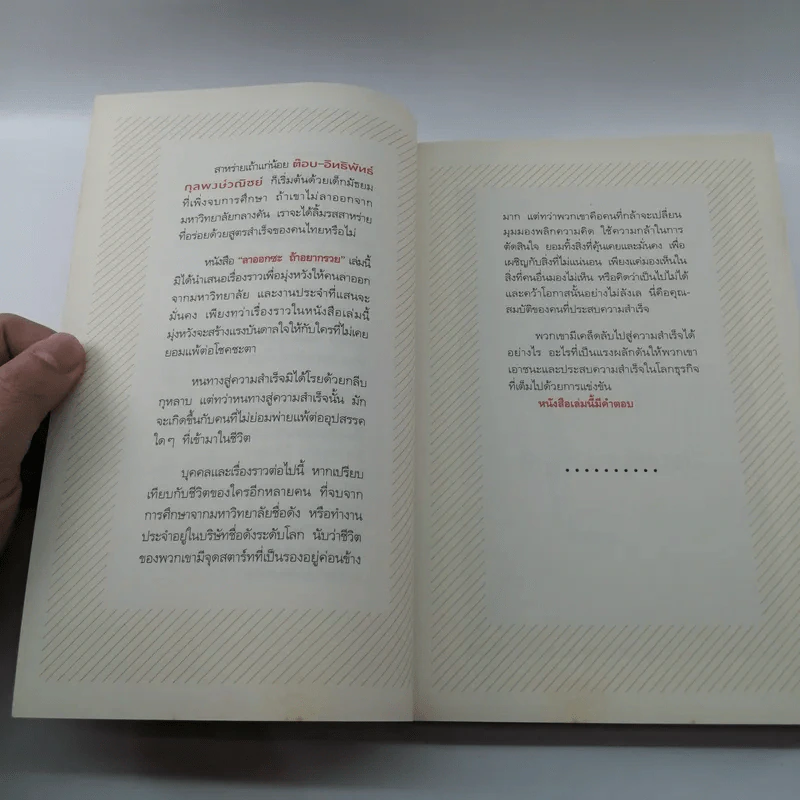 สาหร่ายเถ้าแก่น้อย ต๊อบ-อิทธิพัทธ์
กุลพงษ์วณิชย์ ก็เริ่มต้นด้วยเด็กมัธยม
ที่เพิ่งจบการศึกษา ถ้าเขาไม่ลาออกจาก
มหาวิทยาลัยกลางคัน เราจะได้ลิ้มรสสาหร่าย
ที่อร่อยด้วยสูตรสำเร็จของคนไทยหรือไม่
หนังสือ "ลาออกซะ ถ้าอยากรวย" เล่มนี้
มิได้นำเสนอเรื่องราวเพื่อมุ่งหวังให้คนลาออก
จากมหาวิทยาลัย และงานประจำที่แสนจะ
มั่นคง เพียงทว่าเรื่องราวในหนังสือเล่มนี้
มุ่งหวังจะสร้างแรงบันดาลใจให้กับใครที่ไม่เคย
ยอมแพ้ต่อโชคชะตา
หนทางสู่ความสำเร็จมิได้โรยด้วยกลีบ
กุหลาบ แต่ทว่าหนทางสู่ความสำเร็จนั้น มัก
จะเกิดขึ้นกับคนที่ไม่ยอมพ่ายแพ้ต่ออุปสรรค
ใดๆ ที่เข้ามาในชีวิต
บุคคลและเรื่องราวต่อไปนี้ หากเปรียบ
เทียบกับชีวิตของใครอีกหลายคน ที่จบจาก
การศึกษาจากมหาวิทยาลัยชื่อดัง หรือทำงาน
ประจำอยู่ในบริษัทชื่อดังระดับโลก นับว่าชีวิต
ของพวกเขามีจุดสตาร์ทที่เป็นรองอยู่ค่อนข้าง
มาก แต่ทว่าพวกเขาคือคนที่กล้าจะเปลี่ยน
มุมมองพลิกความคิด ใช้ความกล้าในการ
ตัดสินใจ ยอมทิ้งสิ่งที่คุ้นเคยและมั่นคง เพื่อ
เผชิญกับสิ่งที่ไม่แน่นอน เพียงแค่มองเห็นใน
สิ่งที่คนอื่นมองไม่เห็น หรือคิดว่าเป็นไปไม่ได้
และคว้าโอกาสนั้นอย่างไม่ลังเล นี่คือคุณ-
สมบัติของคนที่ประสบความสำเร็จ
พวกเขามีเคล็ดลับไปสู่ความสำเร็จได้
อย่างไร อะไรที่เป็นแรงผลักดันให้พวกเขา
เอาชนะและประสบความสำเร็จในโลกธุรกิจ
ที่เต็มไปด้วยการแข่งขัน
หนังสือเล่มนี้มีคำตอบ
..........